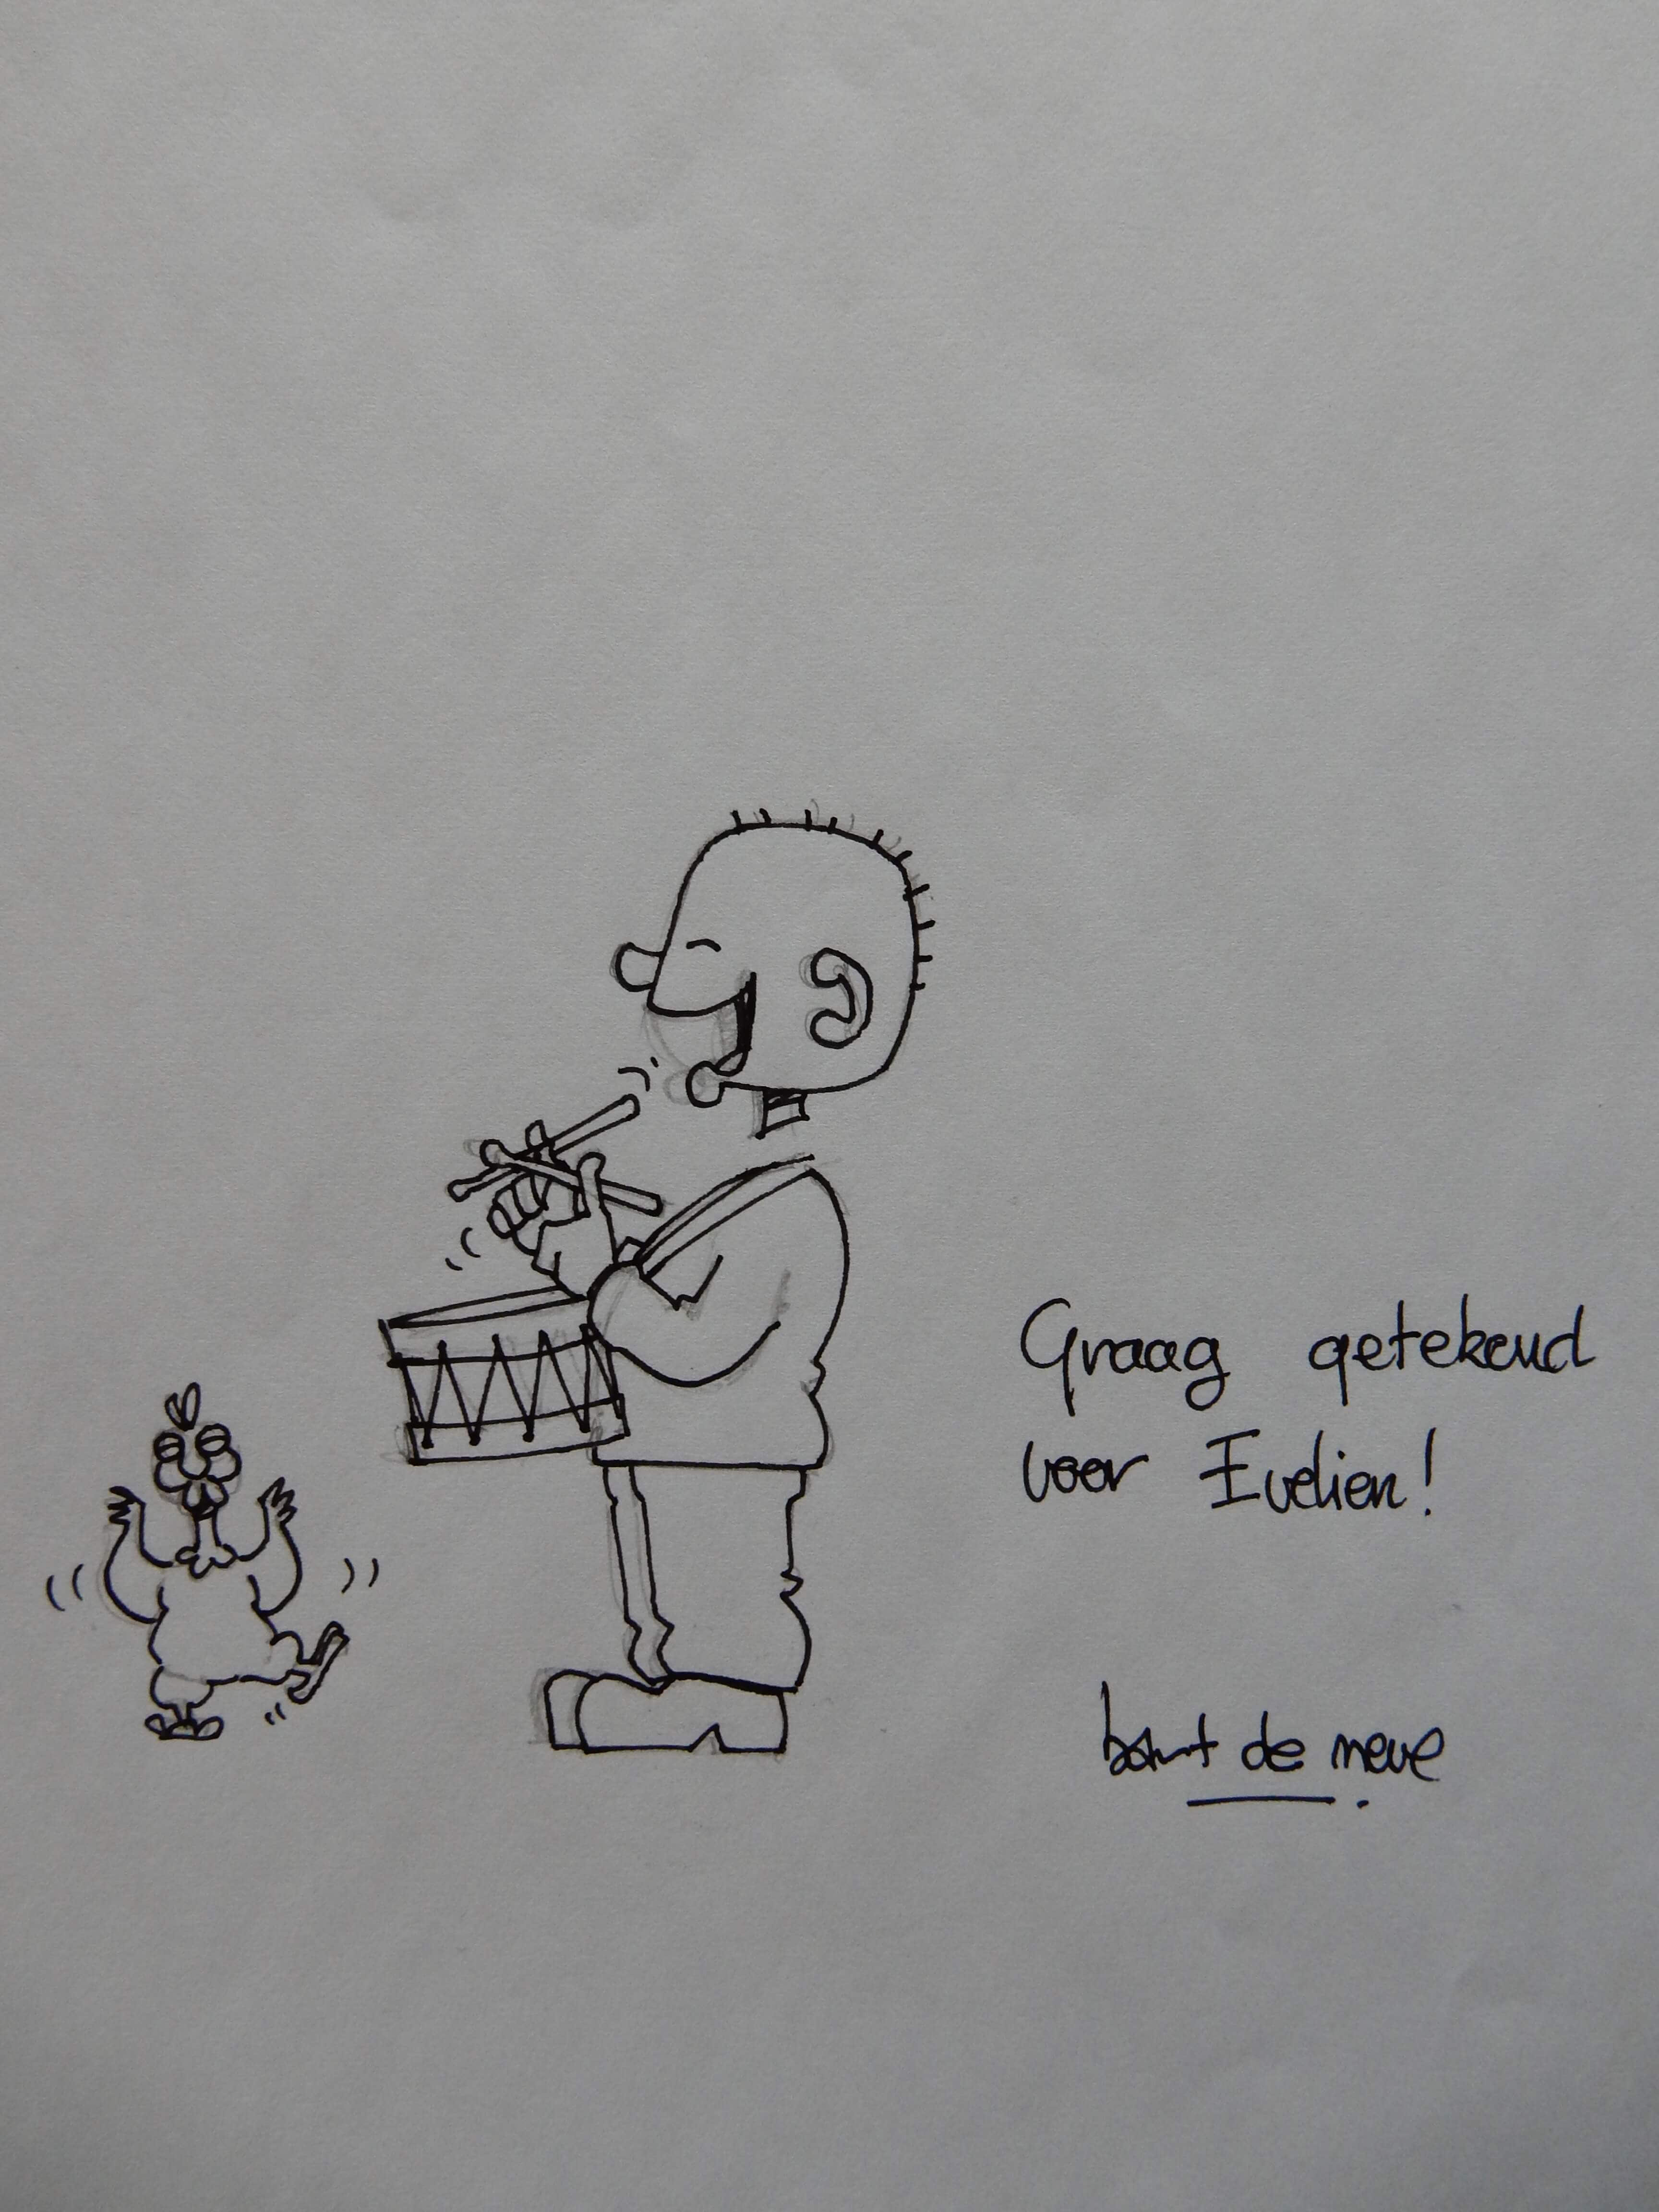 Graag getekend
voor Evelien!
bart de neve